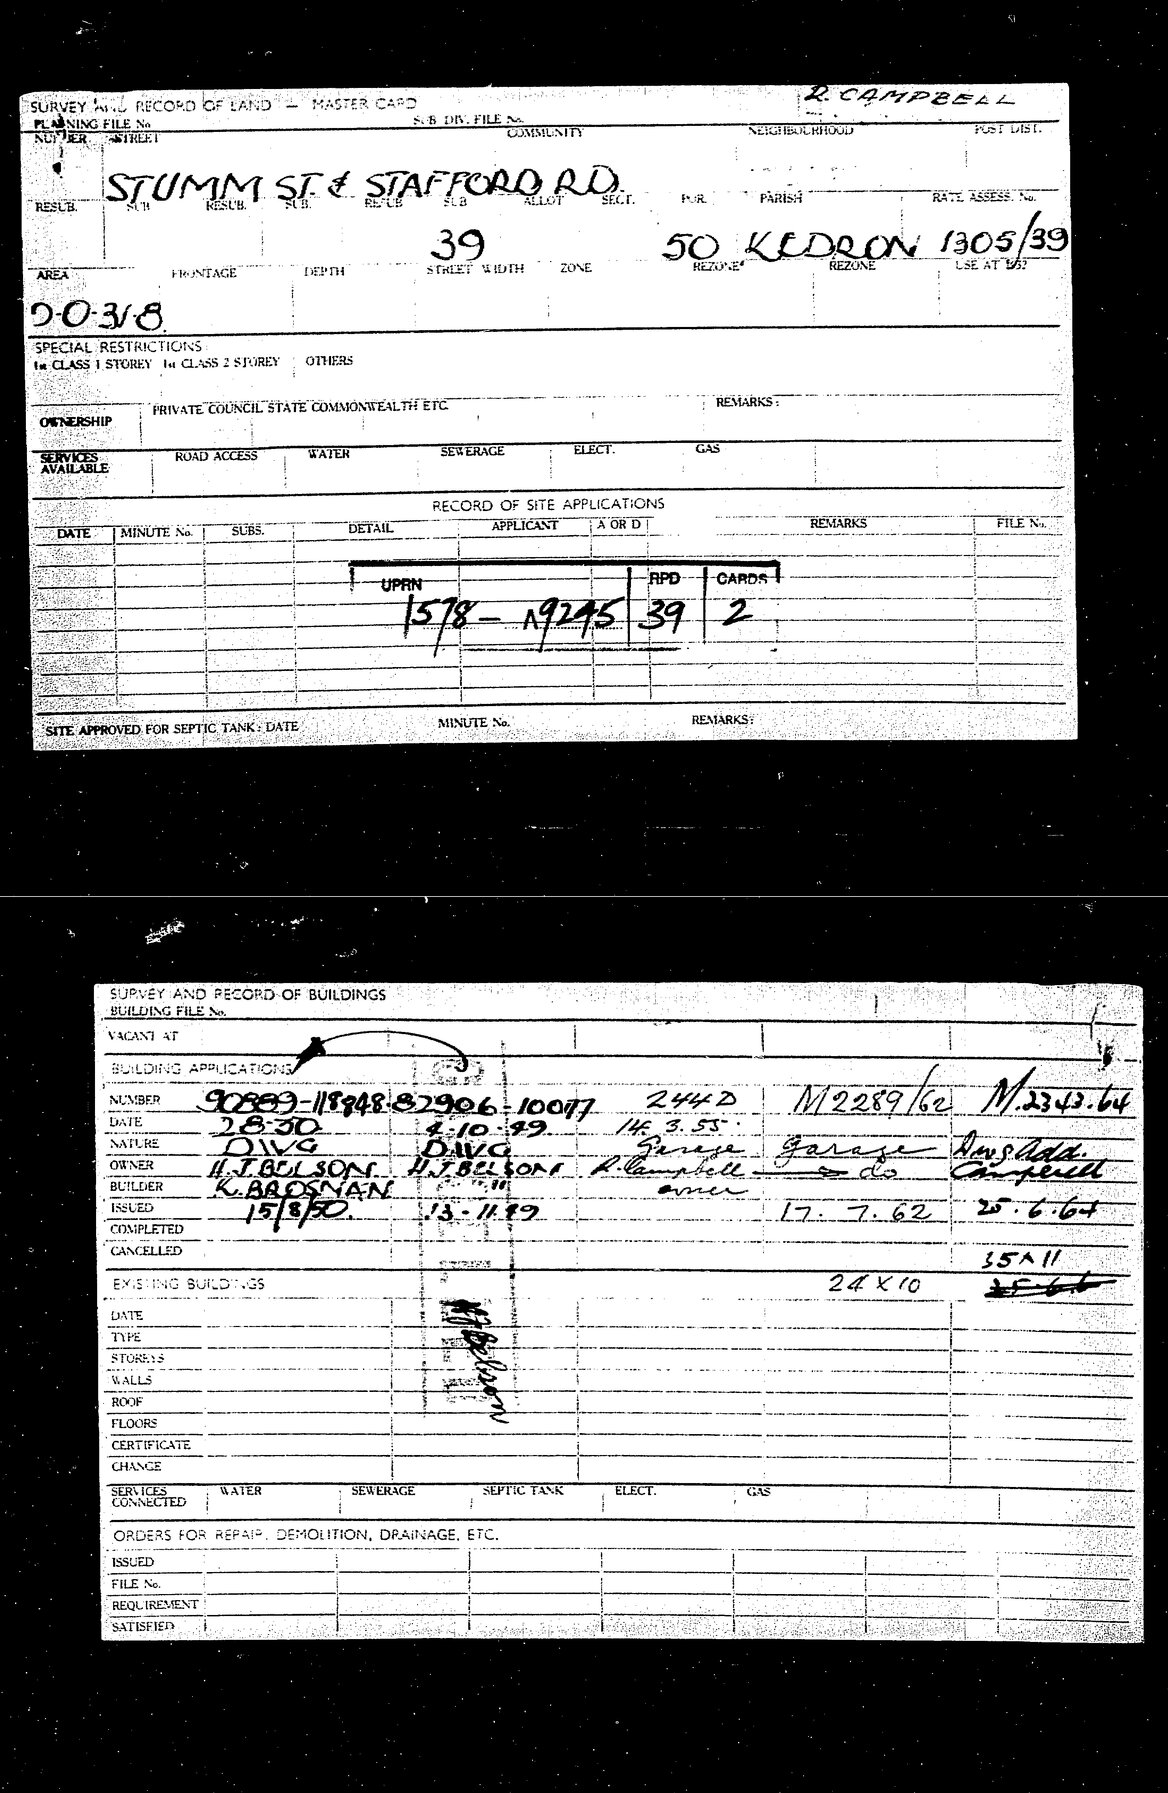 SURVEY AND RECORD OF LAND — MASTER CARD
R. CAMPBELL
PLANNING FILE No SUB DIV. FILE No.
NUMBER STREET COMMUNITY NEIGHBOURHOOD POST DIST.
STUMM ST. & STAFFORD RD.
RESUB. SUB RESUB. SUB. RESUB SUB ALLOT SECT. POR. PARISH RATE ASSESS. No.
39 50 KEDRON 1305/39
AREA FRONTAGE DEPTH STREET WIDTH ZONE REZONE REZONE USE AT
0-0-31·8
SPECIAL RESTRICTIONS
1st CLASS 1 STOREY 1st CLASS 2 STOREY OTHERS
OWNERSHIP PRIVATE COUNCIL STATE COMMONWEALTH ETC REMARKS:
SERVICES AVAILABLE ROAD ACCESS WATER SEWERAGE ELECT. GAS
RECORD OF SITE APPLICATIONS
DATE MINUTE No. SUBS. DETAIL APPLICANT A OR D REMARKS FILE No.
UPRN RPD CARDS
1578 – 39 2
SITE APPROVED FOR SEPTIC TANK: DATE MINUTE No. REMARKS:
SURVEY AND RECORD OF BUILDINGS
BUILDING FILE No.
VACANT AT
BUILDING APPLICATIONS
NUMBER 90889-118848 82906-10077 244D M2289/62 M.2343.64
DATE 4-10-49. 14.3.55.
NATURE DWG DWG Garage Garage Dwg Add.
OWNER H.J. BELSON H.J. BELSON R. Campbell do Campbell
BUILDER K. BROSNAN " owner
ISSUED 15/8/50. 13-11.49 17. 7. 62 25.6.64
COMPLETED
CANCELLED 35 x 11
EXISTING BUILDINGS 24 x 10
DATE
TYPE
STOREYS
WALLS
ROOF
FLOORS
CERTIFICATE
CHANGE
SERVICES CONNECTED WATER SEWERAGE SEPTIC TANK ELECT. GAS
ORDERS FOR REPAIR, DEMOLITION, DRAINAGE, ETC.
ISSUED
FILE No.
REQUIREMENT
SATISFIED